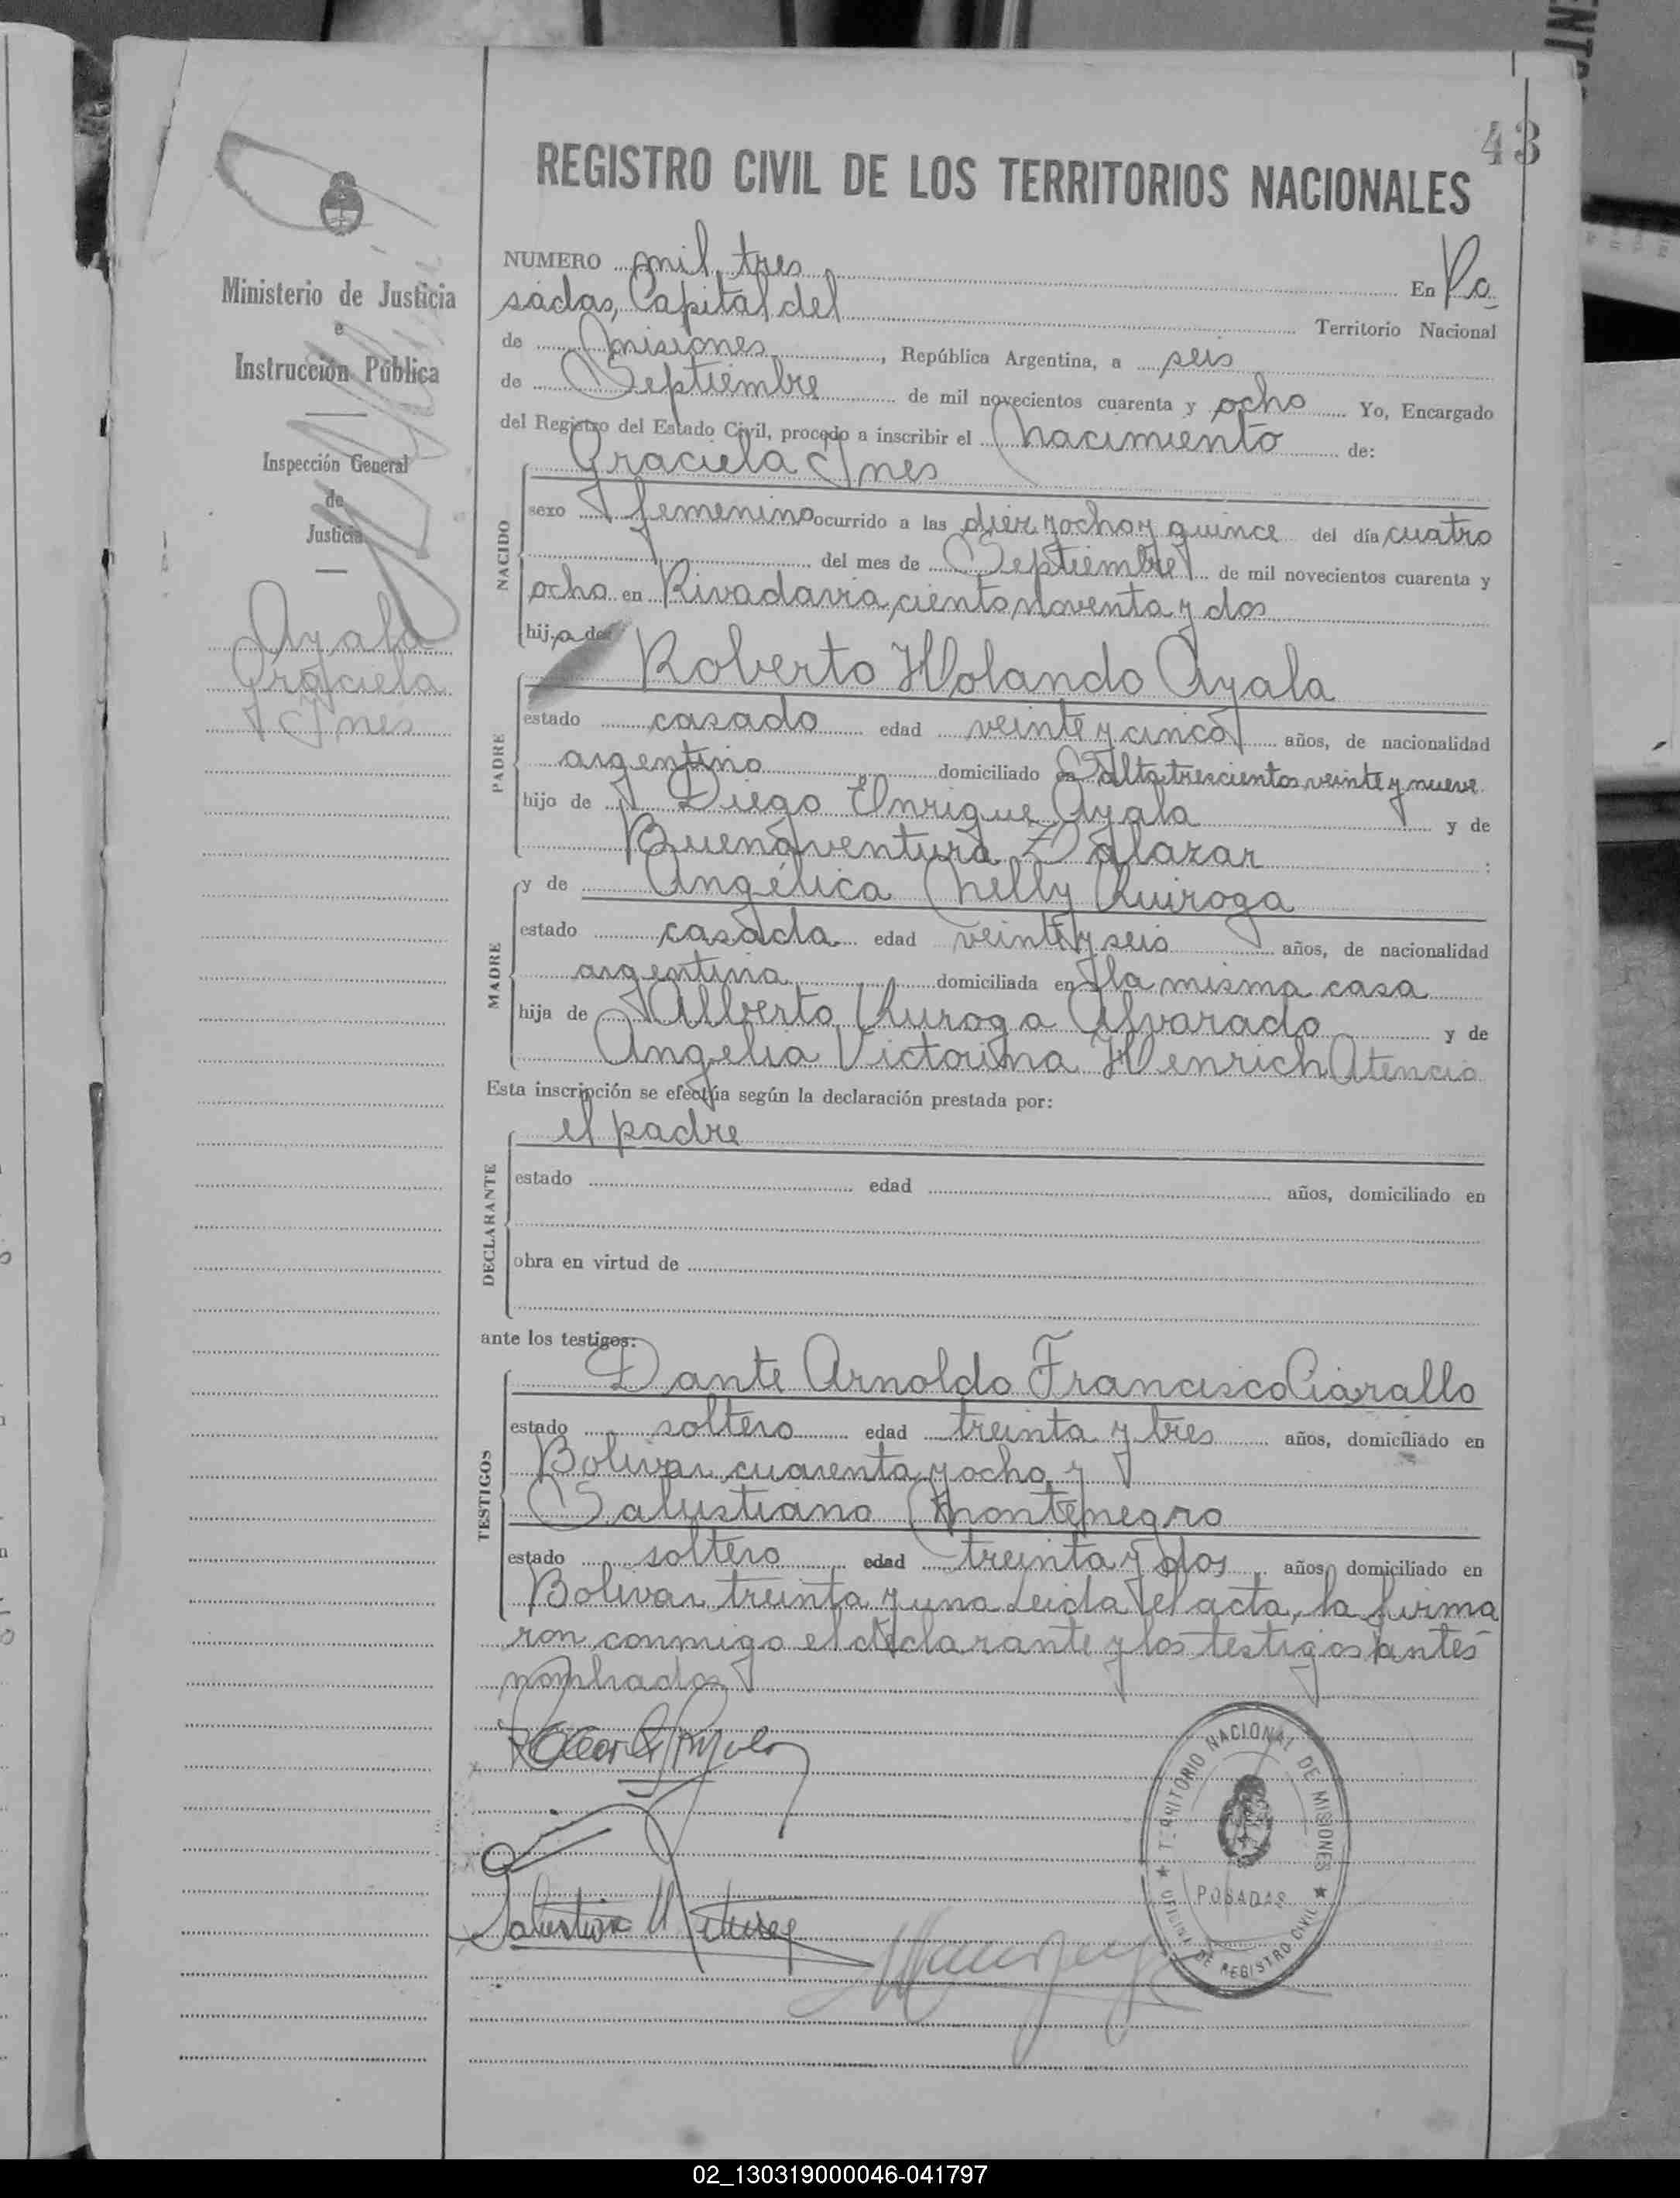 43
REGISTRO CIVIL DE LOS TERRITORIOS NACIONALES
Ministerio de Justicia
e
Instrucción Pública
Inspección General
de
Justicia
Ayala
Graciela
Ines
NUMERO mil tres En Po
sadas, Capital del Territorio Nacional
de Misiones, República Argentina, a seis
de Septiembre de mil novecientos cuarenta y ocho Yo, Encargado
del Registro del Estado Civil, procedo a inscribir el Nacimiento de:
Graciela Ines
NACIDO
sexo femenino ocurrido a las diez y ocho y quince del día cuatro
del mes de Septiembre de mil novecientos cuarenta y
ocho en Rivadavia ciento noventa y dos
hija de:
Roberto Holando Ayala
PADRE
estado casado edad veinte y cinco años, de nacionalidad
argentino domiciliado en Salta trescientos veinte y nueve
hijo de Diego Enrique Ayala y de
Buenaventura Salazar ;
MADRE
y de Angélica Nelly Quiroga
estado casada edad veinte y seis años, de nacionalidad
argentina domiciliada en la misma casa
hija de Alberto Quiroga Alvarado y de
Angelia Victorina Henrich Atencio
Esta inscripción se efectúa según la declaración prestada por:
el padre
DECLARANTE
estado edad años, domiciliado en
obra en virtud de
ante los testigos:
Dante Arnoldo Francisco Ciarallo
TESTIGOS
estado soltero edad treinta y tres años, domiciliado en
Bolivar cuarenta y ocho y
Salustiano Montenegro
estado soltero edad treinta y dos años, domiciliado en
Bolivar treinta y uno Leida el acta, la firma
ron conmigo el declarante y los testigos antes
nombrados
TERRITORIO NACIONAL DE MISIONES
POSADAS
OFICINA DE REGISTRO CIVIL
02_130319000046-041797